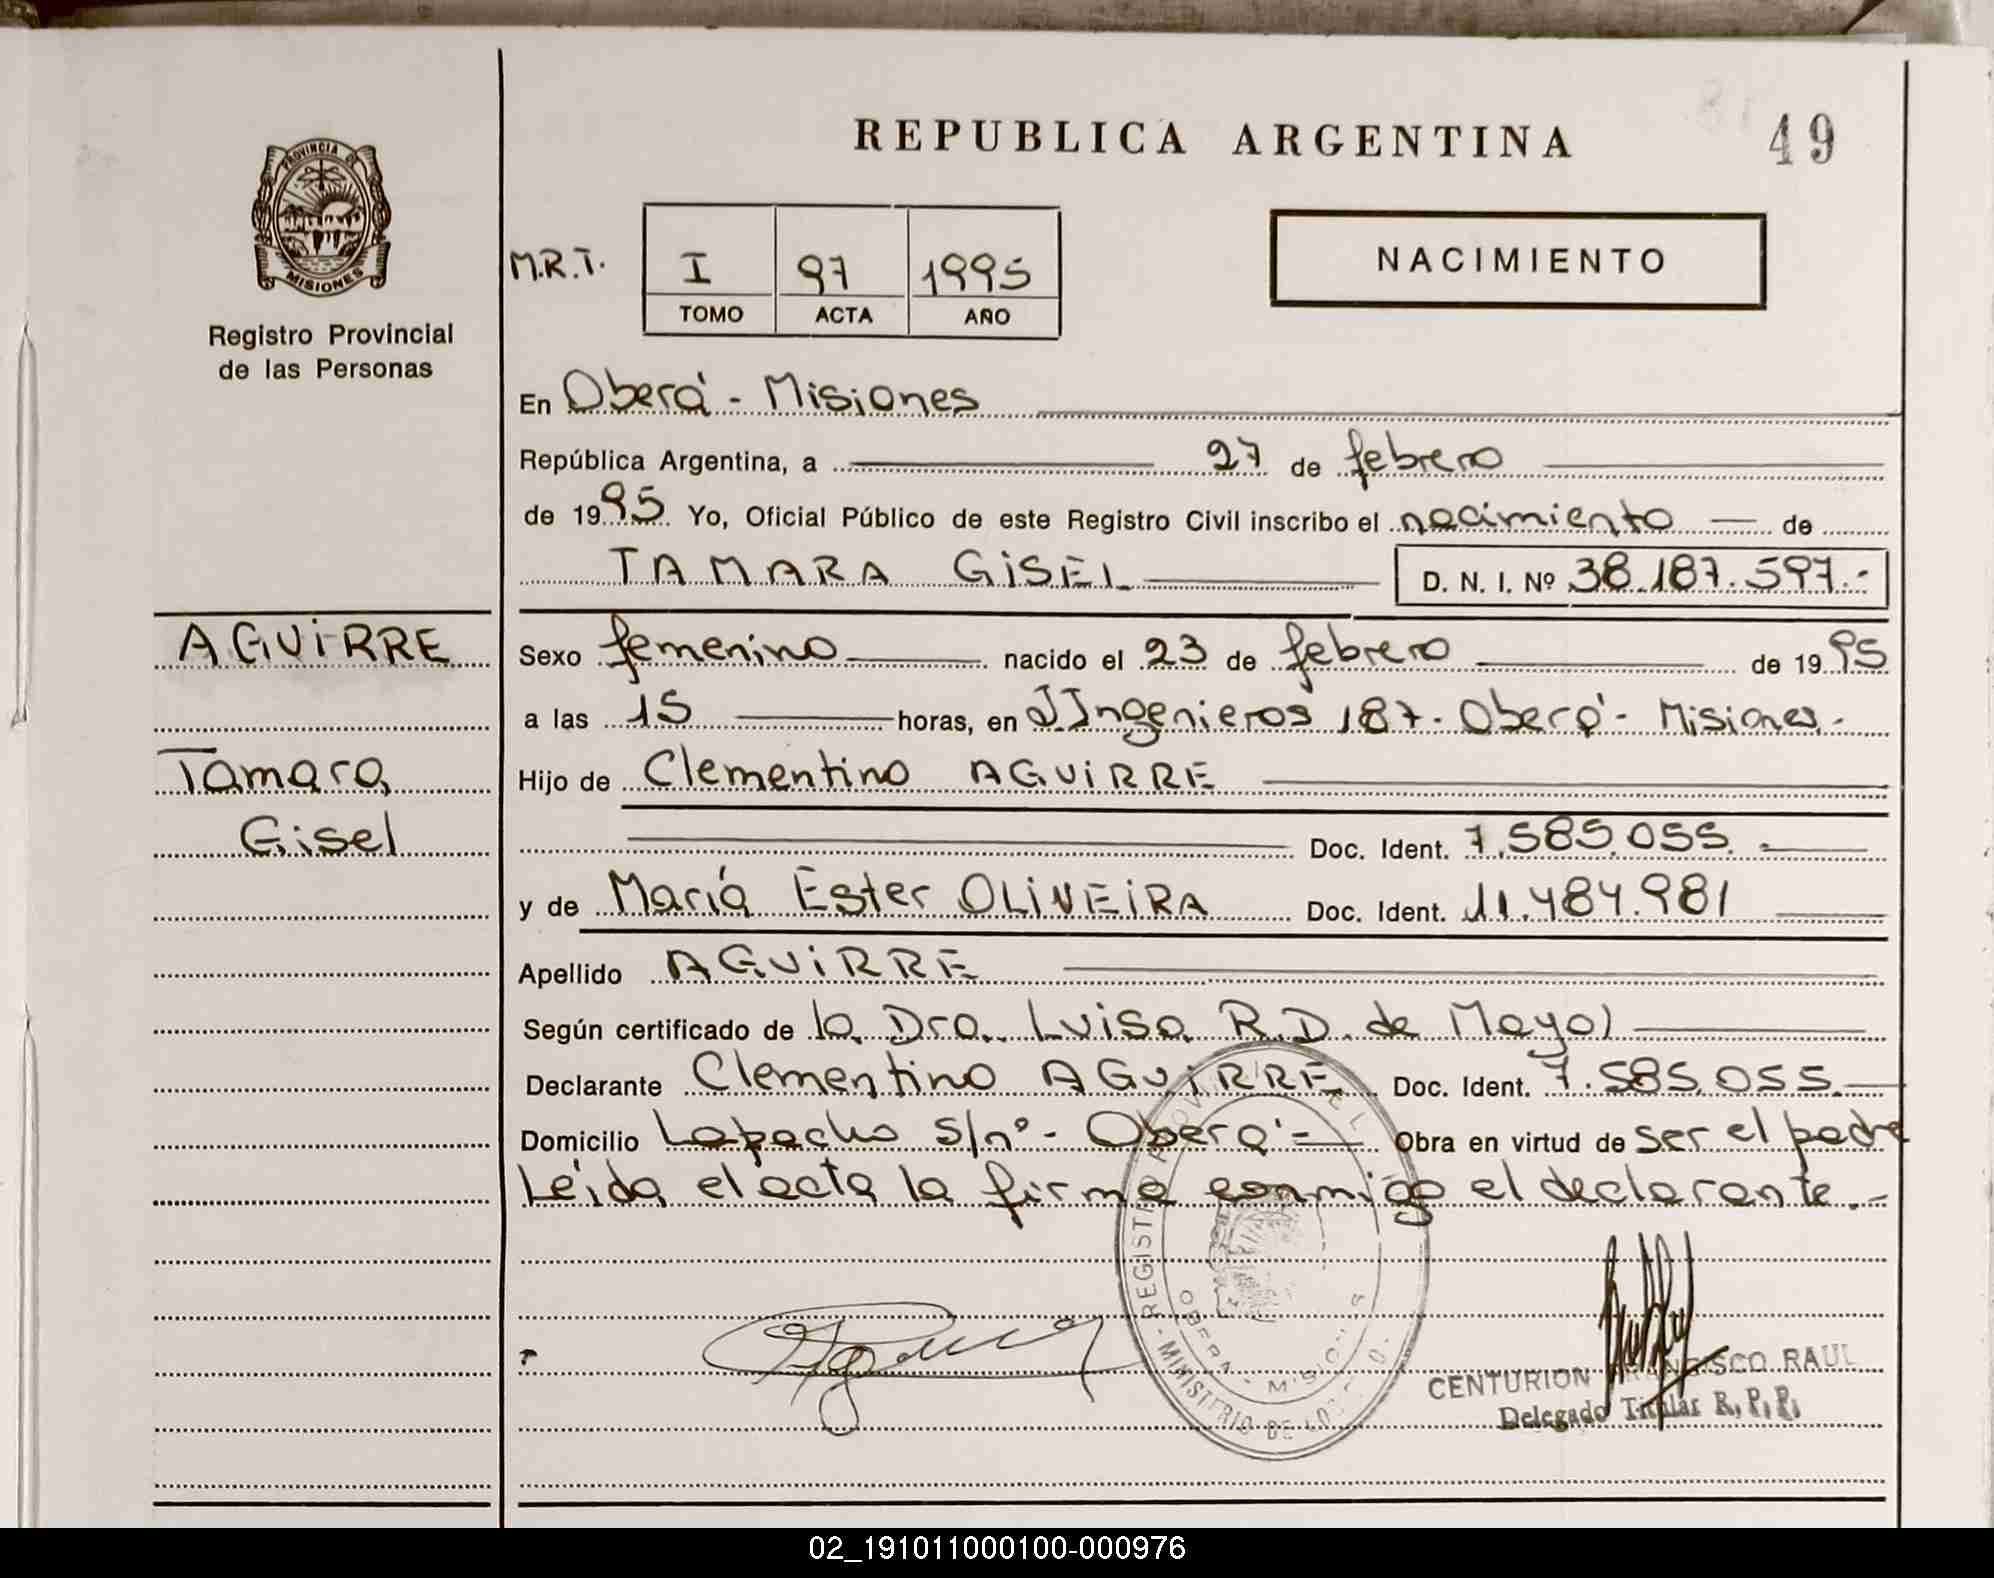 REPUBLICA ARGENTINA
49
PROVINCIA DE
MISIONES
Registro Provincial
de las Personas
M.R.T.
I 97 1995
TOMO ACTA AÑO
NACIMIENTO
En Oberá - Misiones
República Argentina, a 27 de febrero
de 1995 Yo, Oficial Público de este Registro Civil inscribo el nacimiento de
TAMARA GISEL D. N. I. Nº 38.187.597.-
AGUIRRE
Tamara
Gisel
Sexo femenino nacido el 23 de febrero de 1995
a las 15 horas, en J Ingenieros 187 - Oberá - Misiones -
Hijo de Clementino AGUIRRE
Doc. Ident. 7.585.055.-
y de María Ester OLIVEIRA Doc. Ident. 11.484.981
Apellido AGUIRRE
Según certificado de la Dra. Luisa R.D. de Mayol
Declarante Clementino AGUIRRE Doc. Ident. 7.585.055.
Domicilio Lapacho s/nº - Oberá - Obra en virtud de ser el padre
Leída el acta la firma conmigo el declarante.-
REGISTR PROVI
OBERA - MISION
MINISTERIO DE
CENTURION FRANCISCO RAUL
Delegado Titular R.P.P.
02_191011000100-000976